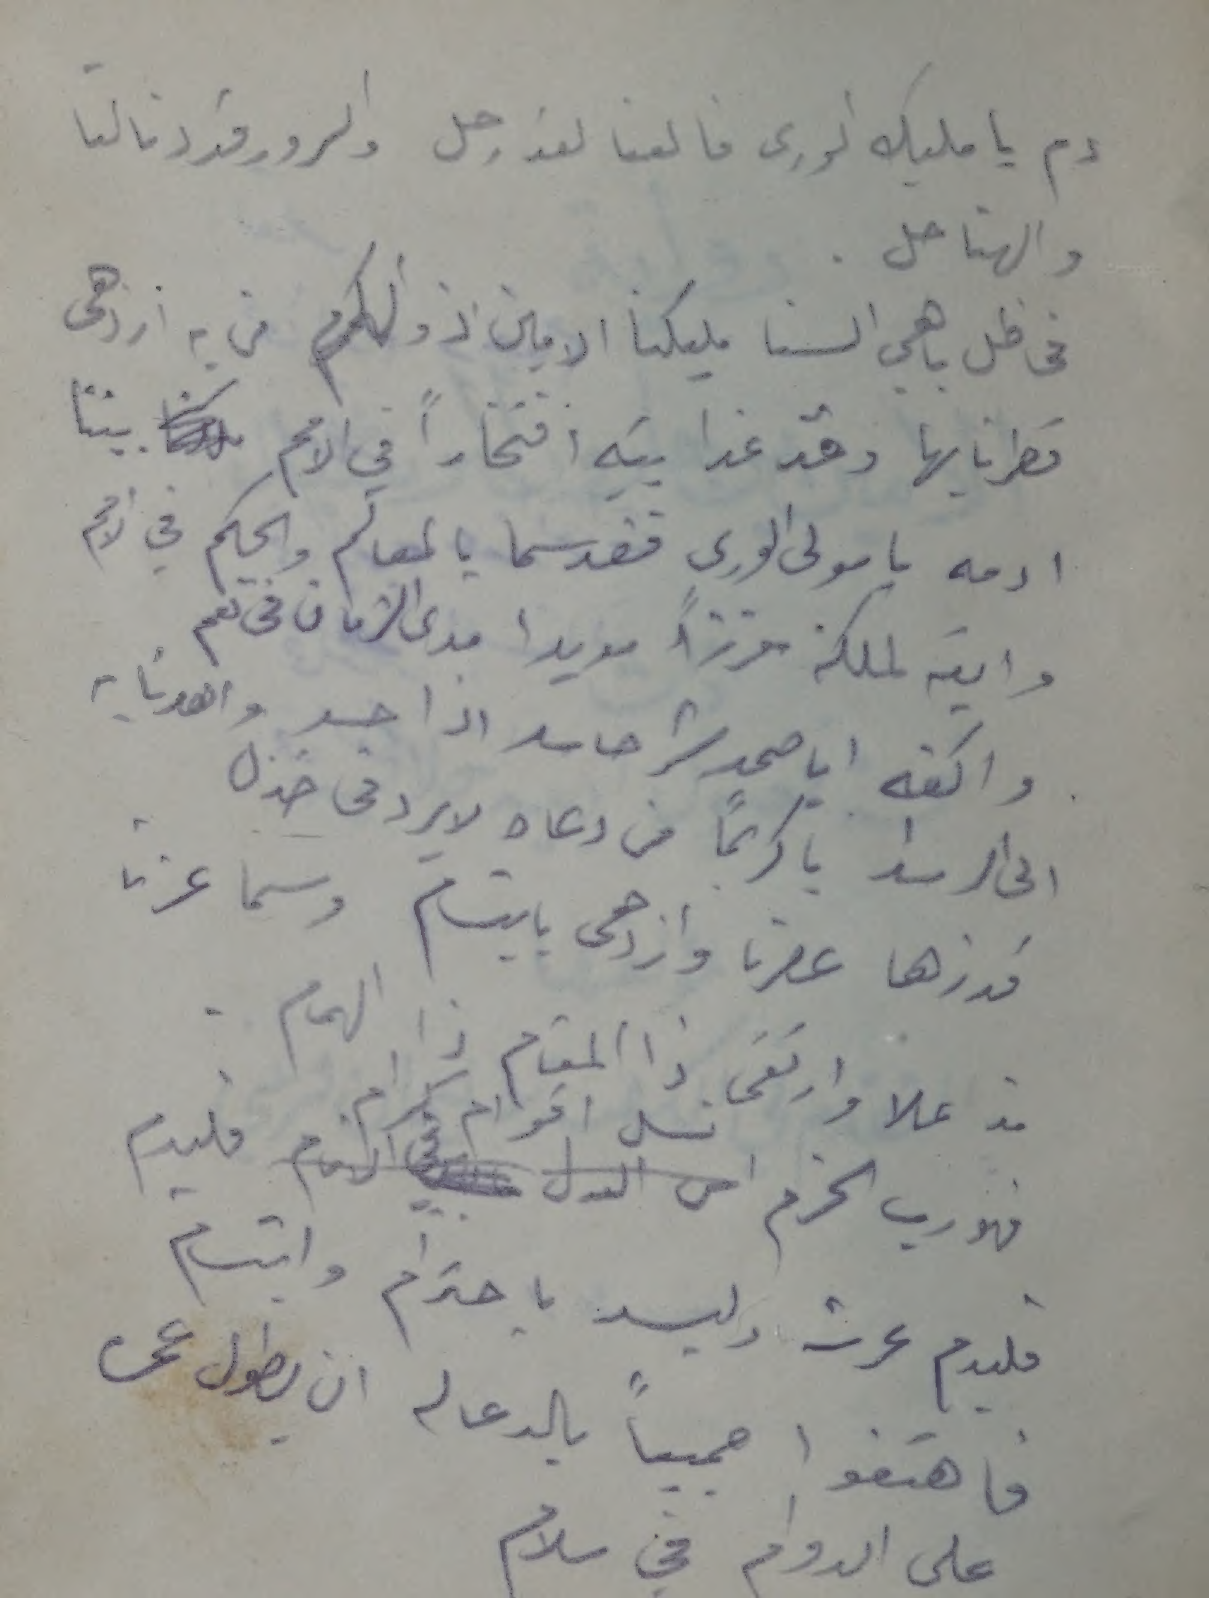 دم يا مليك الورى فالعنا لقد رحل والسرور قد دنا لنا
والهنا حل .
في ظل باهي السنا مليكنا الامين ذو الكرم من به ازدهى
قطرنا بها وقد غدا يتيه افتخاراً في الامم بيننا
ادمه يا مولى الورى فقد سما بالمعالم والحكم في الامم
وابقه لملكه مؤيدا مدى الزمان في نعم
واكفه ايا صمد شر حاسد اذا حسد واهدنا به
الى الرشد يا كريماً من دعاه لا يرد في خذل
قد زها عصرنا وازدهى بابتسام وسما عزنا
مذ علا وارتقى ذا المقام ذا الهمام .
فهو رب الحزم نسل اقوام كرام فليدم
فليدم عرشه وليسد باحترام وابتسام
فاهتفوا جميعاً بالدعا له ان يطول عمره
على الدوام في سلام